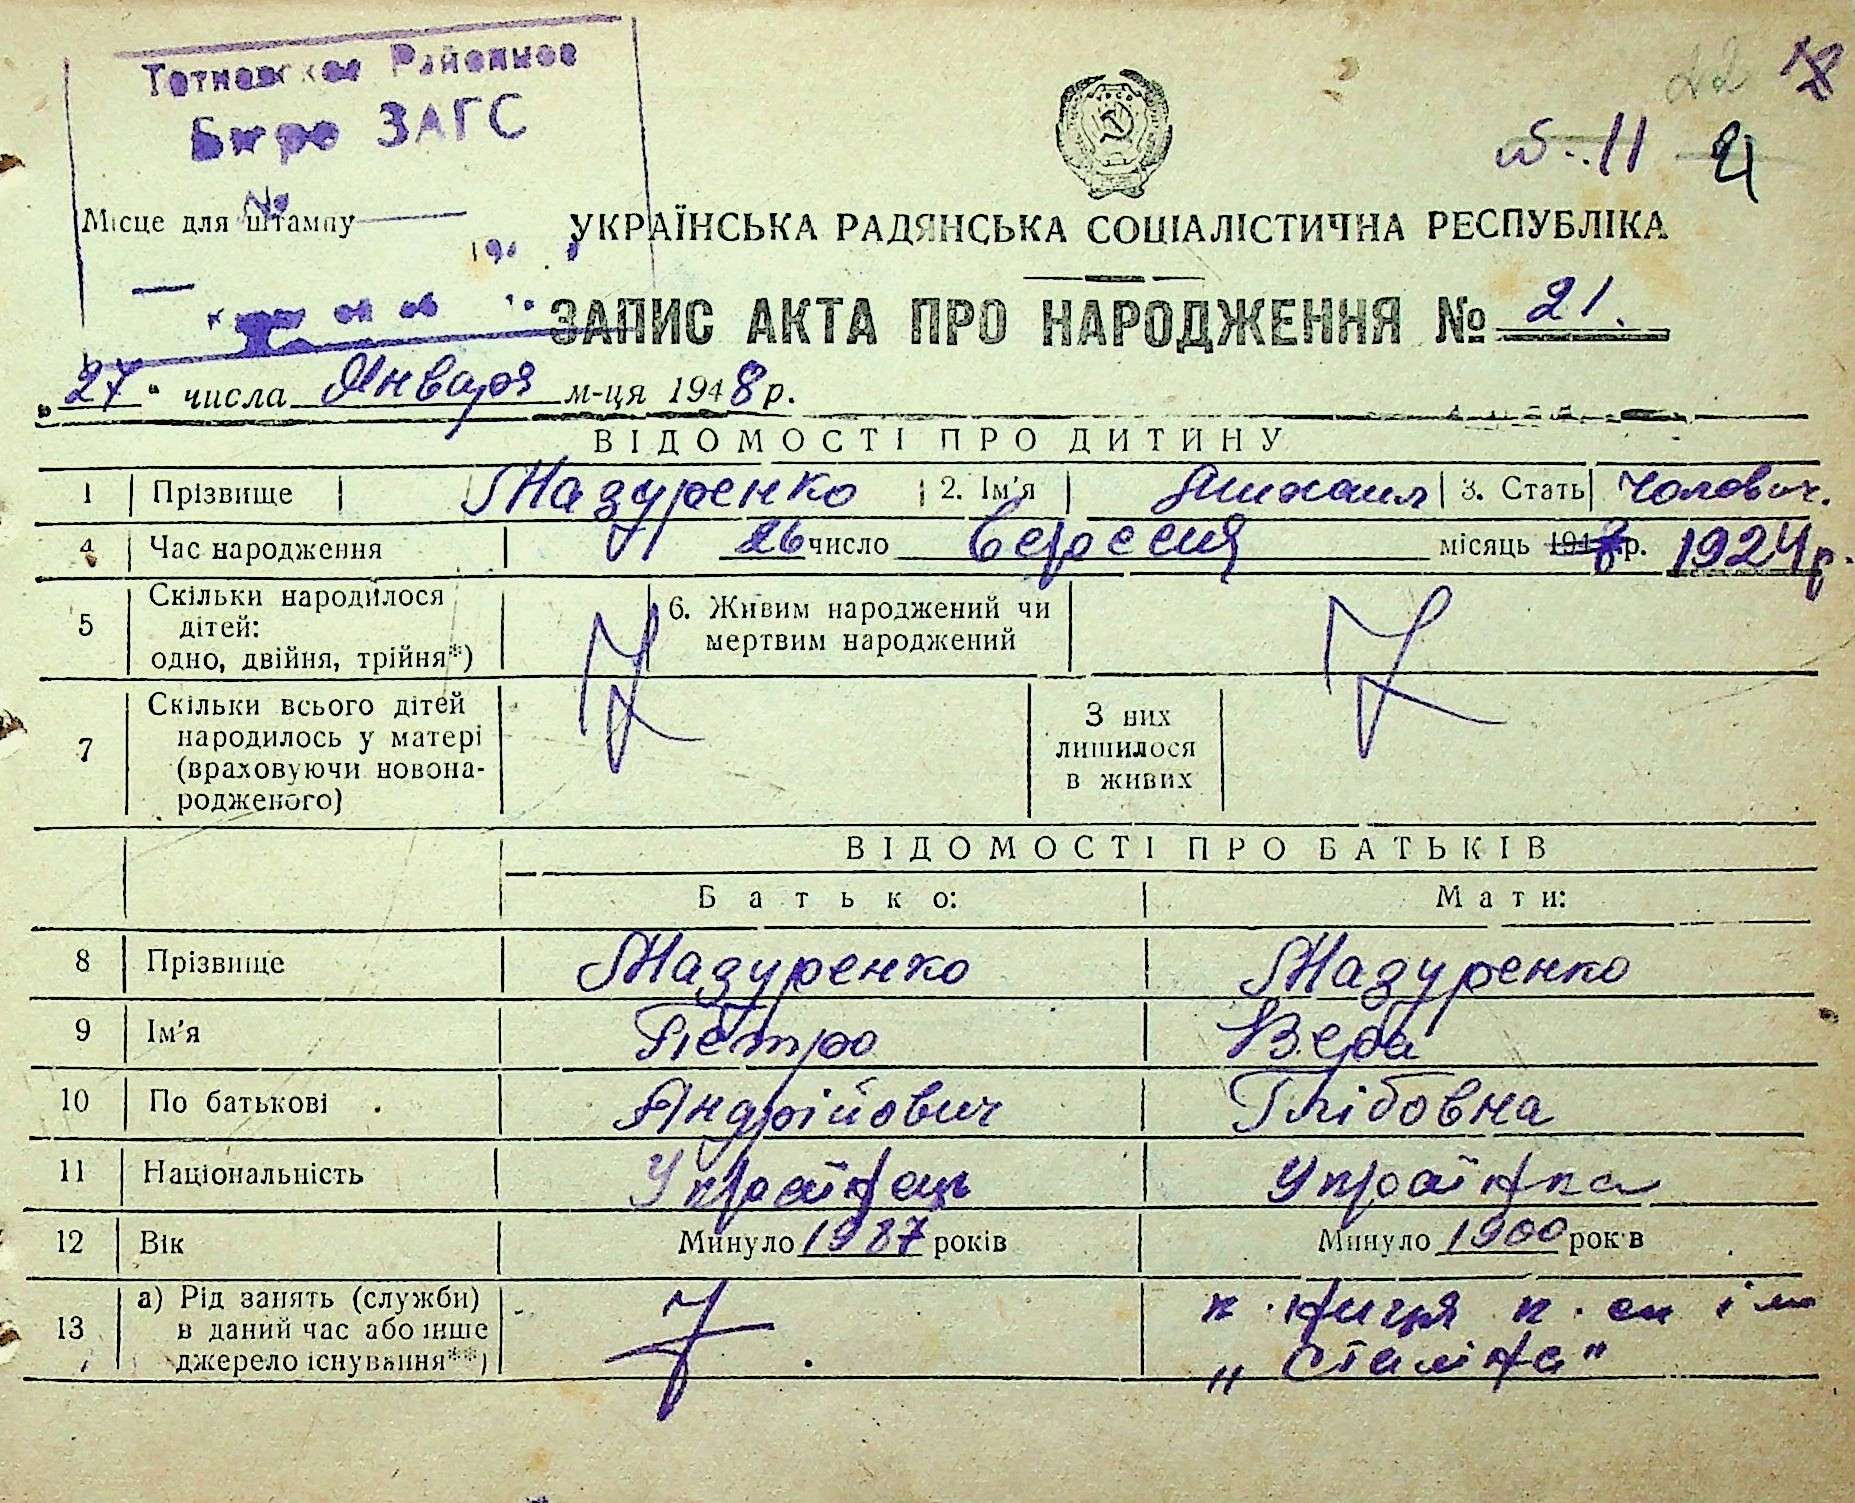 Районное
Бюро ЗАГС
№
Місце для штампу
22
УКРАЇНСЬКА РАДЯНСЬКА СОЦІАЛІСТИЧНА РЕСПУБЛІКА
ЗАПИС АКТА ПРО НАРОДЖЕННЯ № 21.
„27" числа Января м-ця 1948 р.
ВІДОМОСТІ ПРО ДИТИНУ
1 Прізвище Мазуренко 2. Ім'я Михаил 3. Стать Чолович.
4 Час народження 26 число Вересня місяць 1947 р. 1924 р.
5 Скільки народилося дітей: одно, двійня, трійня*) 6. Живим народжений чи мертвим народжений
7 Скільки всього дітей народилось у матері (враховуючи новонародженого) З них лишилося в живих
ВІДОМОСТІ ПРО БАТЬКІВ
Батько: Мати:
8 Прізвище Мазуренко Мазуренко
9 Ім'я Петро Вера
10 По батькові Андрійович Глібовна
11 Національність Українець Українка
12 Вік Минуло 1987 років Минуло 1900 років
13 а) Рід занять (служби) в даний час або інше джерело існування**) к-ниця к-сп ім „Сталіна"